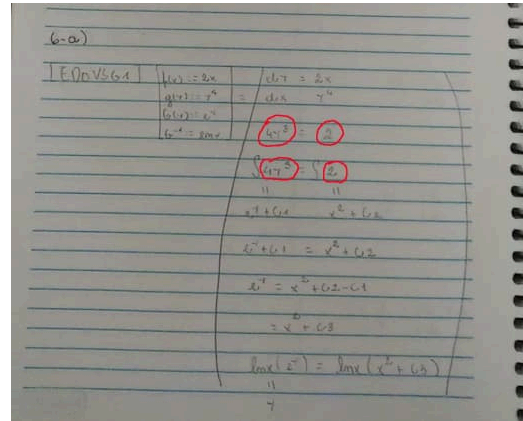 6-a)
EDOVSG1
f(x) := 2x
g(y) := y⁴
G(y) := e^y
G⁻¹ := ln x
= dy = 2x
dx y⁴
4y³ = 2
∫4y³ = ∫2
= =
e^y + C1 x² + C2
e^y + C1 = x² + C2
e^y = x² + C2 - C1
= x² + C3
lnx(e^y) = lnx(x² + C3)
=
y